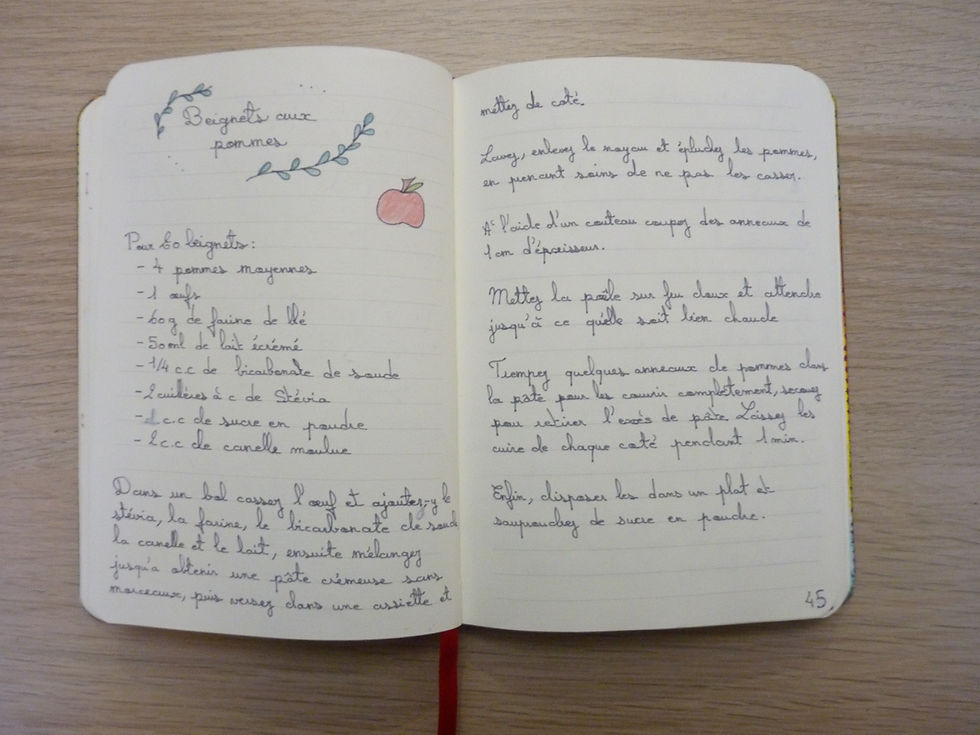 Beignets aux
pommes
Pour 60 beignets :
- 4 pommes moyennes
- 1 œufs
- 60g de farine de blé
- 50ml de lait écrémé
- 1/4 c.c de bicarbonate de soude
- 2 cuillères à c de Stévia
- 1 c.c de sucre en poudre
- 2 c.c de canelle moulue
Dans un bol cassez l'œuf et ajoutez-y le
stévia, la farine, le bicarbonate de soud
la canelle et le lait, ensuite mélangez
jusqu'a obtenir une pâte crémeuse sans
morceaux, puis versez dans une assiette et
mettez de coté.
Lavez, enlevez le noyau et épluchez les pommes,
en prenant soins de ne pas les casser.
A l'aide d'un couteau coupez des anneaux de
1 cm d'épaisseur.
Mettez la poêle sur feu doux et attendre
jusqu'à ce qu'elle soit bien chaude
Trempez quelques anneaux de pommes dans
la pâte pour les couvrir complètement, secouez
pour retirer l'excès de pâte. Laissez les
cuire de chaque coté pendant 1 min.
Enfin, disposer les dans un plat et
saupoudrez de sucre en poudre.
45